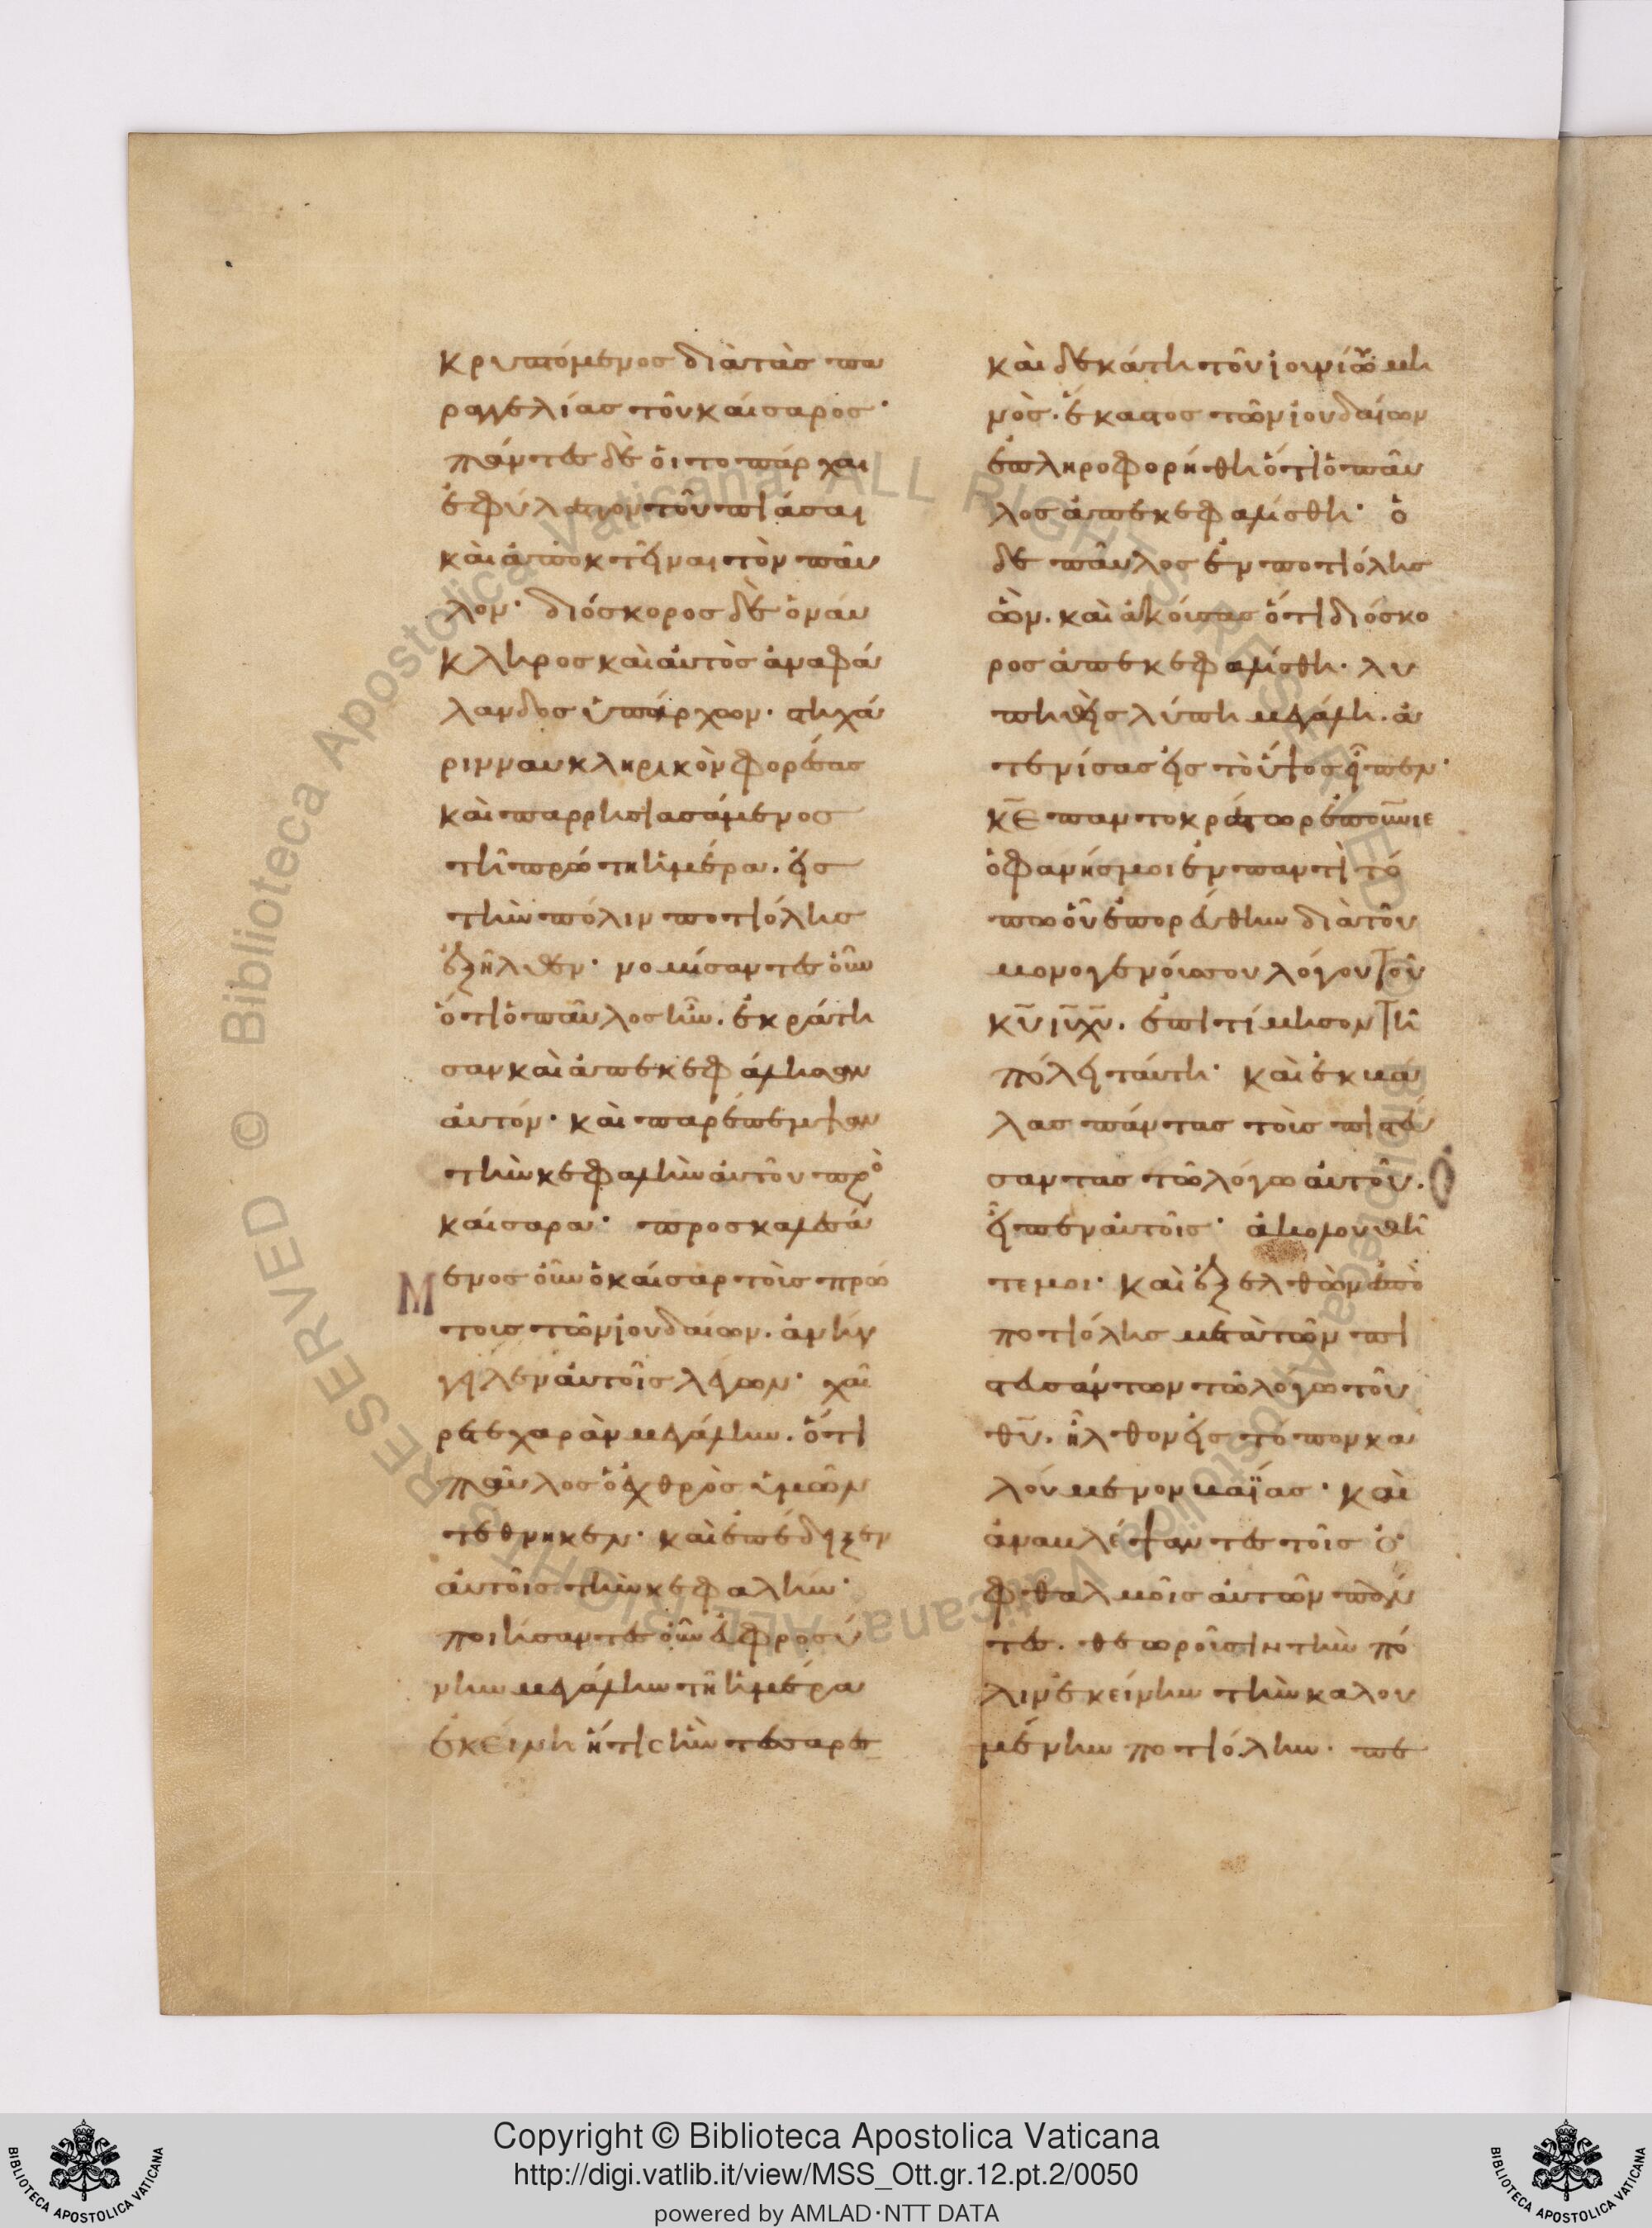 κρυπτόμενος διὰ τὰς πα
ραγγελίας τοῦ καίσαρος·
πάντες δὲ ὁι τοπάρχαι
ἐφύλαττον τοῦ πιάσαι
καὶ ἀποκτεῖναι τὸν παῦ
λον· διόσκορος δὲ ὁ ναύ
κληρος καὶ ἀυτὸς ἀναφά
λανδος ὑπάρχων. τὴ χά
ριν ναυκληρικὸν φορέσας
καὶ παρρησιασάμενος
τῆ πρώτη ἡμέρα. εἰς
τὴν πόλιν ποτιόλης
ἐξῆλθεν· νομίσαντες οὖν
ὅτι ὁ παῦλος ἦν. ἐκράτη
σαν καὶ ἀπεκεφάλησαν
ἀυτόν· καὶ παρέπεμψαν
τὴν κεφαλὴν ἀυτοῦ πρὸ
καίσαρα· προσκαλεσά
Μενος οὖν ὁ καίσαρ τοὶς πρώ
τοις τῶν ἰουδαίων. ἀνήγ
γειλεν ἀυτοῖς λέγων· χαῖ
ρετε χαρὰν μεγάλην. ὅτι
παῦλος ὁ ἐχθρὸς ὑμῶν
τέθνηκεν· καὶ ἐπέδειξεν
ἀυτοῖς τὴν κεφαλήν·
ποιήσαντες οὖν ἐυφροσύ
νην μεγάλην τῆ ἡμέρα
ἐκείνη ἥτις ἦν τεσαρες
καὶ δεκάτη τοῦ ἰουνίου μη
νὸς. ἕκαστος τῶν ἰουδαίων
ἐπληροφορήθη ὅτι ὁ παῦ
λος ἀπεκεφαλίσθη· ὁ
δὲ παῦλος ἐν ποτιόλης
ὢν. καὶ ἀκούσας ὅτι διόσκο
ρος ἀπεκεφαλίσθη. λυ
πηθεὶς λύπη μεγάλη. ἀ
τενίσας εἰς τὸ ὕψος εἶπεν·
κ̅ε̅ παντοκράτωρ ἐπουνιε
ὁ φανείς μοι ἐν παντὶ τό
πω οὗ ἐπορεύθην διὰ τοῦ
μονογενοῦς σου λόγου τοῦ
κ̅υ̅ ι̅υ̅ χ̅υ̅. ἐπιτίμησον τῆ
πόλει ταύτη· καὶ ἐκβα
λας πάντας τοὶς πιστέυ
σαντας τῶ λόγω ἀυτοῦ.
εἶπεν ἀυτοῖς· ἀκολουθῆ
τε μοι· καὶ ἐξελθὼν ἀπὸ
ποτιόλης μετὰ τῶν πι
στεσάντων τῶ λόγω τοῦ
θ̅υ̅. ἦλθον εἰς τόπον κα
λούμενον βαΐας· καὶ
ἀναβλέψαντες τοῖς ὀ
φθαλμοῖς ἀυτῶν πάν
τες. θεωροῦσιν τὴν πό
λιν ἐκείνην τὴν καλου
μένην ποτιόλην. πε
Copyright © Biblioteca Apostolica Vaticana
http://digi.vatlib.it/view/MSS_Ott.gr.12.pt.2/0050
powered by AMLAD·NTT DATA